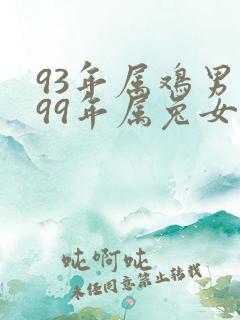 93年属鸡男
99年属兔女
吨啊吨
未经同意禁止转载